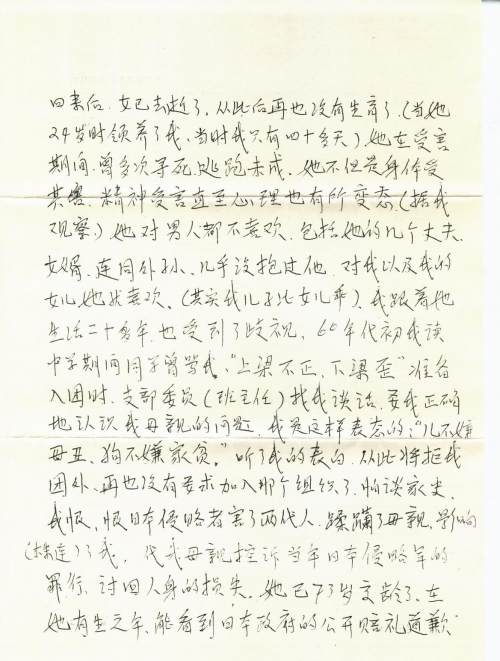 回来后.女已去逝了,从此后再也没有生育了(当她
24岁时领养了我、当时我只有四十多天)她在受害
期间.曾多次寻死.逃跑未成.她不但是身体受
其害.精神受害直至心理也有所变态.(据我
观察)她对男人都不喜欢.包括她的几个丈夫.
女婿.连同外孙、几乎没抱过他.对我以及我的
女儿她就喜欢、(其实我儿子比女儿乖)、我跟着她
生活二十多年.也受到了歧视、60年代初我读
中学期间同学曾骂我、"上梁不正、下梁歪"准备
入团时.支部委员(班主任)找我谈话.要我正确
地认识我母亲的问题.我是这样表态的:"儿不嫌
母丑、狗不嫌家贫。"听了我的表白.从此将拒我
团外、再也没有要求加入那个组织了.怕谈家史.
我恨、恨日本侵略者害了两代人.蹂躏了母亲.影响
(株连)了我、代我母亲控诉当年日本侵略军的
罪行、讨回人身的损失、她已73岁高龄了.在
她有生之年.能看到日本政府的公开赔礼道歉